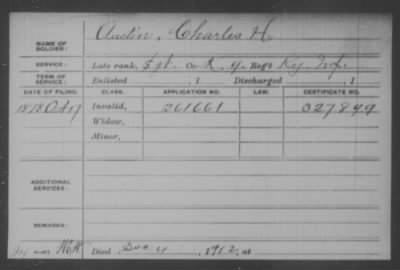 Austin, Charles H.
NAME OF SOLDIER:
SERVICE: Late rank, Sgt. Co. K, 9. Reg't Ky. Inf.
TERM OF SERVICE: Enlisted , 1 Discharged , 1
DATE OF FILING. CLASS. APPLICATION NO. LAW. CERTIFICATE NO.
1878 Oct 17 Invalid, 261661 027899
Widow,
Minor,
ADDITIONAL SERVICES:
REMARKS:
Died Dec 4, 1912, at